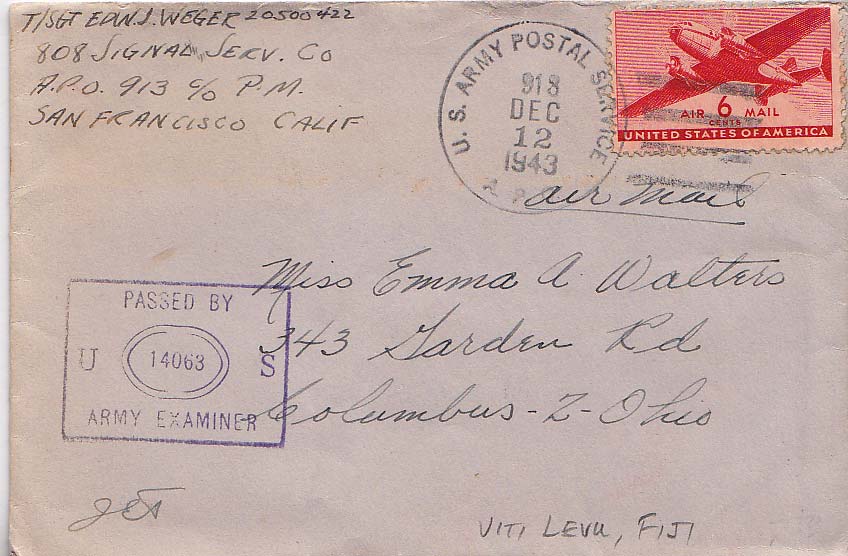 T/SGT EDW.J. WEGER 20500422
808 SIGNAL SERV. CO
A.P.O. 913 c/o P.M.
SAN FRANCISCO CALIF
U. S. ARMY POSTAL SERVICE
913
DEC
12
1943
AIR 6 MAIL
CENTS
UNITED STATES OF AMERICA
air mail
Miss Emma A. Walters
343 Garden Rd
Columbus-2-Ohio
PASSED BY
U 14063 S
ARMY EXAMINER
VITI LEVU, FIJI